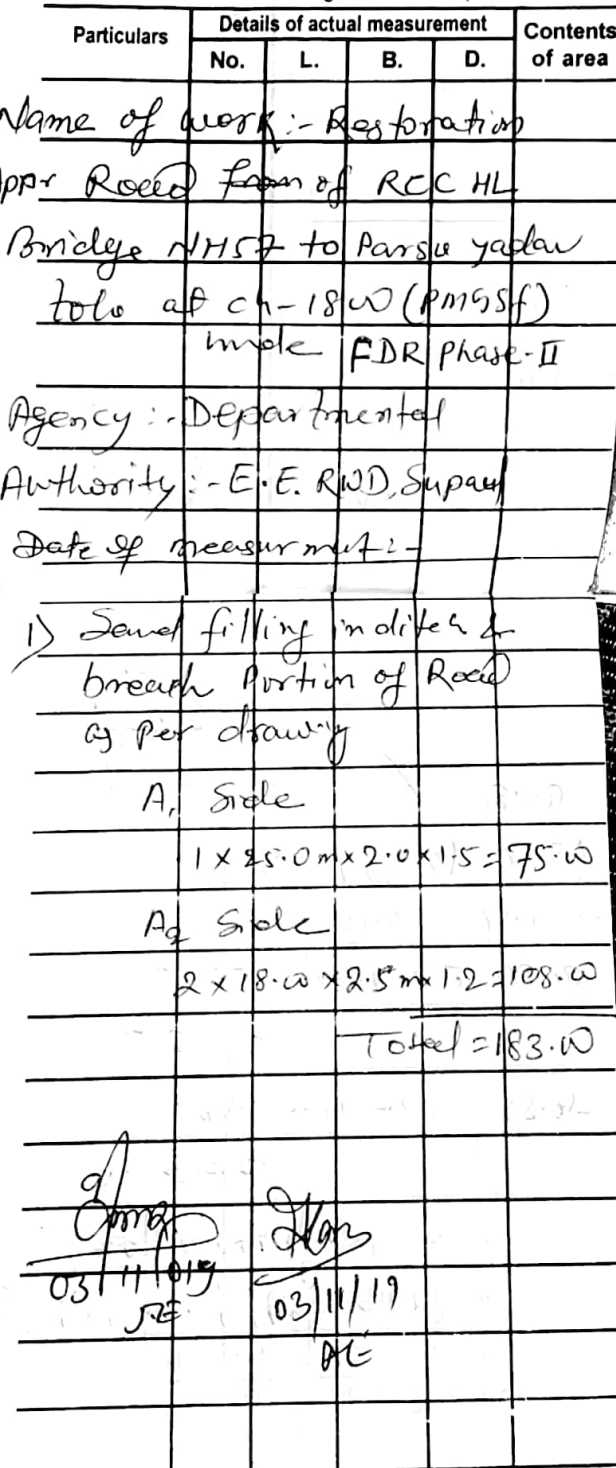 Particulars Details of actual measurement Contents of area
No. L. B. D.
Name of work :- Restoration
Appr Road from of RCC HL
Bridge NH57 to Parsu yadav
tola at ch-1800 (PMGSY)
FDR Phase-II
Agency :- Departmental
Authority :- E.E. RWD, Supaul
Date of measurment :-
1) Sand filling in ditch &
breach Portion of Road
as per drawing
A1 Side
1 x 25.0 m x 2.0 x 1.5 = 75.00
A2 Side
2 x 18.00 x 2.5 m x 1.2 = 108.00
Total = 183.00
03/11/019 03/11/19
JE AE